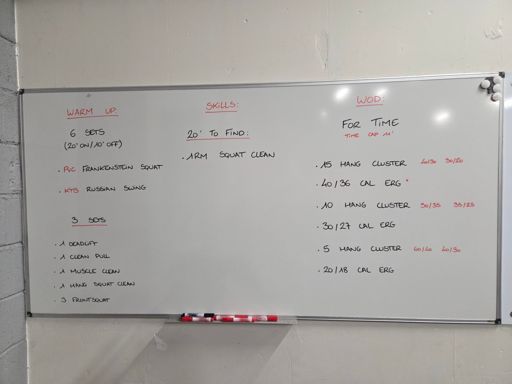 WARM UP:
6 SETS
(20" ON/10" OFF)
. PVC FRANKENSTEIN SQUAT
. KTB RUSSIAN SWING
3 SETS
. 1 DEADLIFT
. 1 CLEAN PULL
. 1 MUSCLE CLEAN
. 1 HANG SQUAT CLEAN
. 3 FRONTSQUAT
SKILLS:
20' TO FIND:
. 1RM SQUAT CLEAN
WOD:
FOR TIME
TIME CAP 11'
. 15 HANG CLUSTER 40/30 30/20
. 40/36 CAL ERG *
. 10 HANG CLUSTER 50/35 35/25
. 30/27 CAL ERG
. 5 HANG CLUSTER 60/40 40/30
. 20/18 CAL ERG